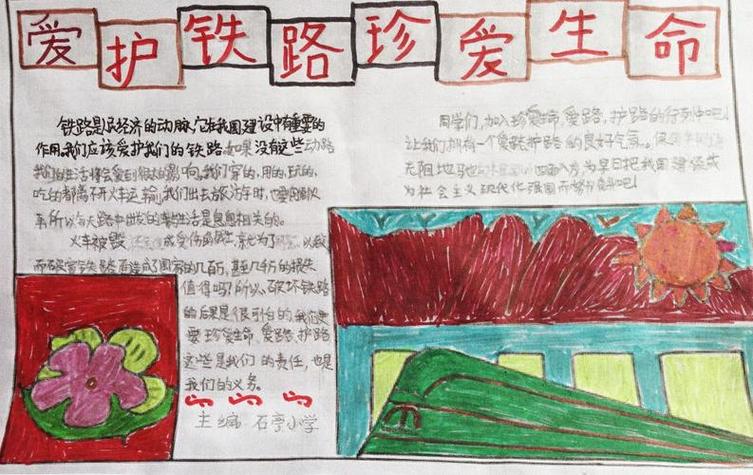 爱护铁路珍爱生命
铁路是民经济的动脉,它在我国建设中有重要的
作用,我们应该爱护我们的铁路,如果没有这些动路
我们的生活将会受到很大的影响,我们穿的,用的,玩的,
吃的都离不开火车运输,我们出去旅游时,也要用到火
车,所以与大路中出发的车生活是息息相关的。
火车被毁 成受伤的 就为了 以我
而破害铁路而造成了国家的几百万,甚至几千万的损失
值得吗?所以,破坏铁路
的后果是很可怕的,我们要
要珍爱生命,爱路,护路
这些是我们的责任,也是
我们的义务。
主编 石亭小学
同学们,加入珍爱生命,爱路,护路的行列中吧!
让我们拥有一个爱路护路的良好气氛。
无阻地驰 四面八方,为早日把我国建设成
为社会主义现代化强国而努力奋斗吧!